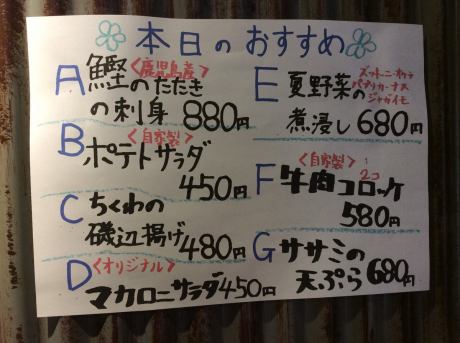 本日のおすすめ
A 鰹のたたき
<鹿児島産>
の刺身 880円
B <自家製>
ポテトサラダ
450円
C ちくわの
磯辺揚げ 480円
D <オリジナル>
マカロニサラダ 450円
E 夏野菜の
ズッキーニ・オクラ
パプリカ・ナス
ジャガイモ
煮浸し 680円
F <自家製>
牛肉コロッケ
2コ
580円
G ササミの
天ぷら 680円